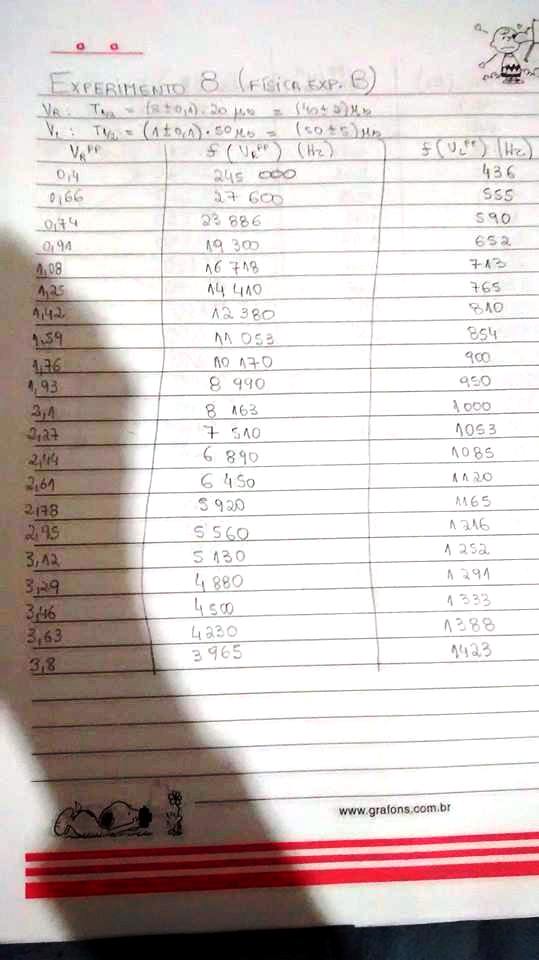 EXPERIMENTO 8 (FÍSICA EXP. B)
VR: T1/2 = (2±0,1).20 μs = (40±2) μs
VL: T1/2 = (1±0,1).50 μs = (50±5) μs
VR^PP f(VR^PP) (Hz) f(VL^PP) (Hz)
0,4 245 000 436
0,66 27 600 555
0,74 23 886 590
0,91 19 300 652
1,08 16 718 713
1,25 14 410 765
1,42 12 380 810
1,59 11 053 854
1,76 10 170 900
1,93 8 990 950
2,1 8 163 1000
2,27 7 510 1053
2,44 6 890 1085
2,61 6 450 1120
2,78 5 920 1165
2,95 5 560 1216
3,12 5 130 1 252
3,29 4 880 1 291
3,46 4 500 1 333
3,63 4 230 1 388
3,8 3 965 1423
www.grafons.com.br